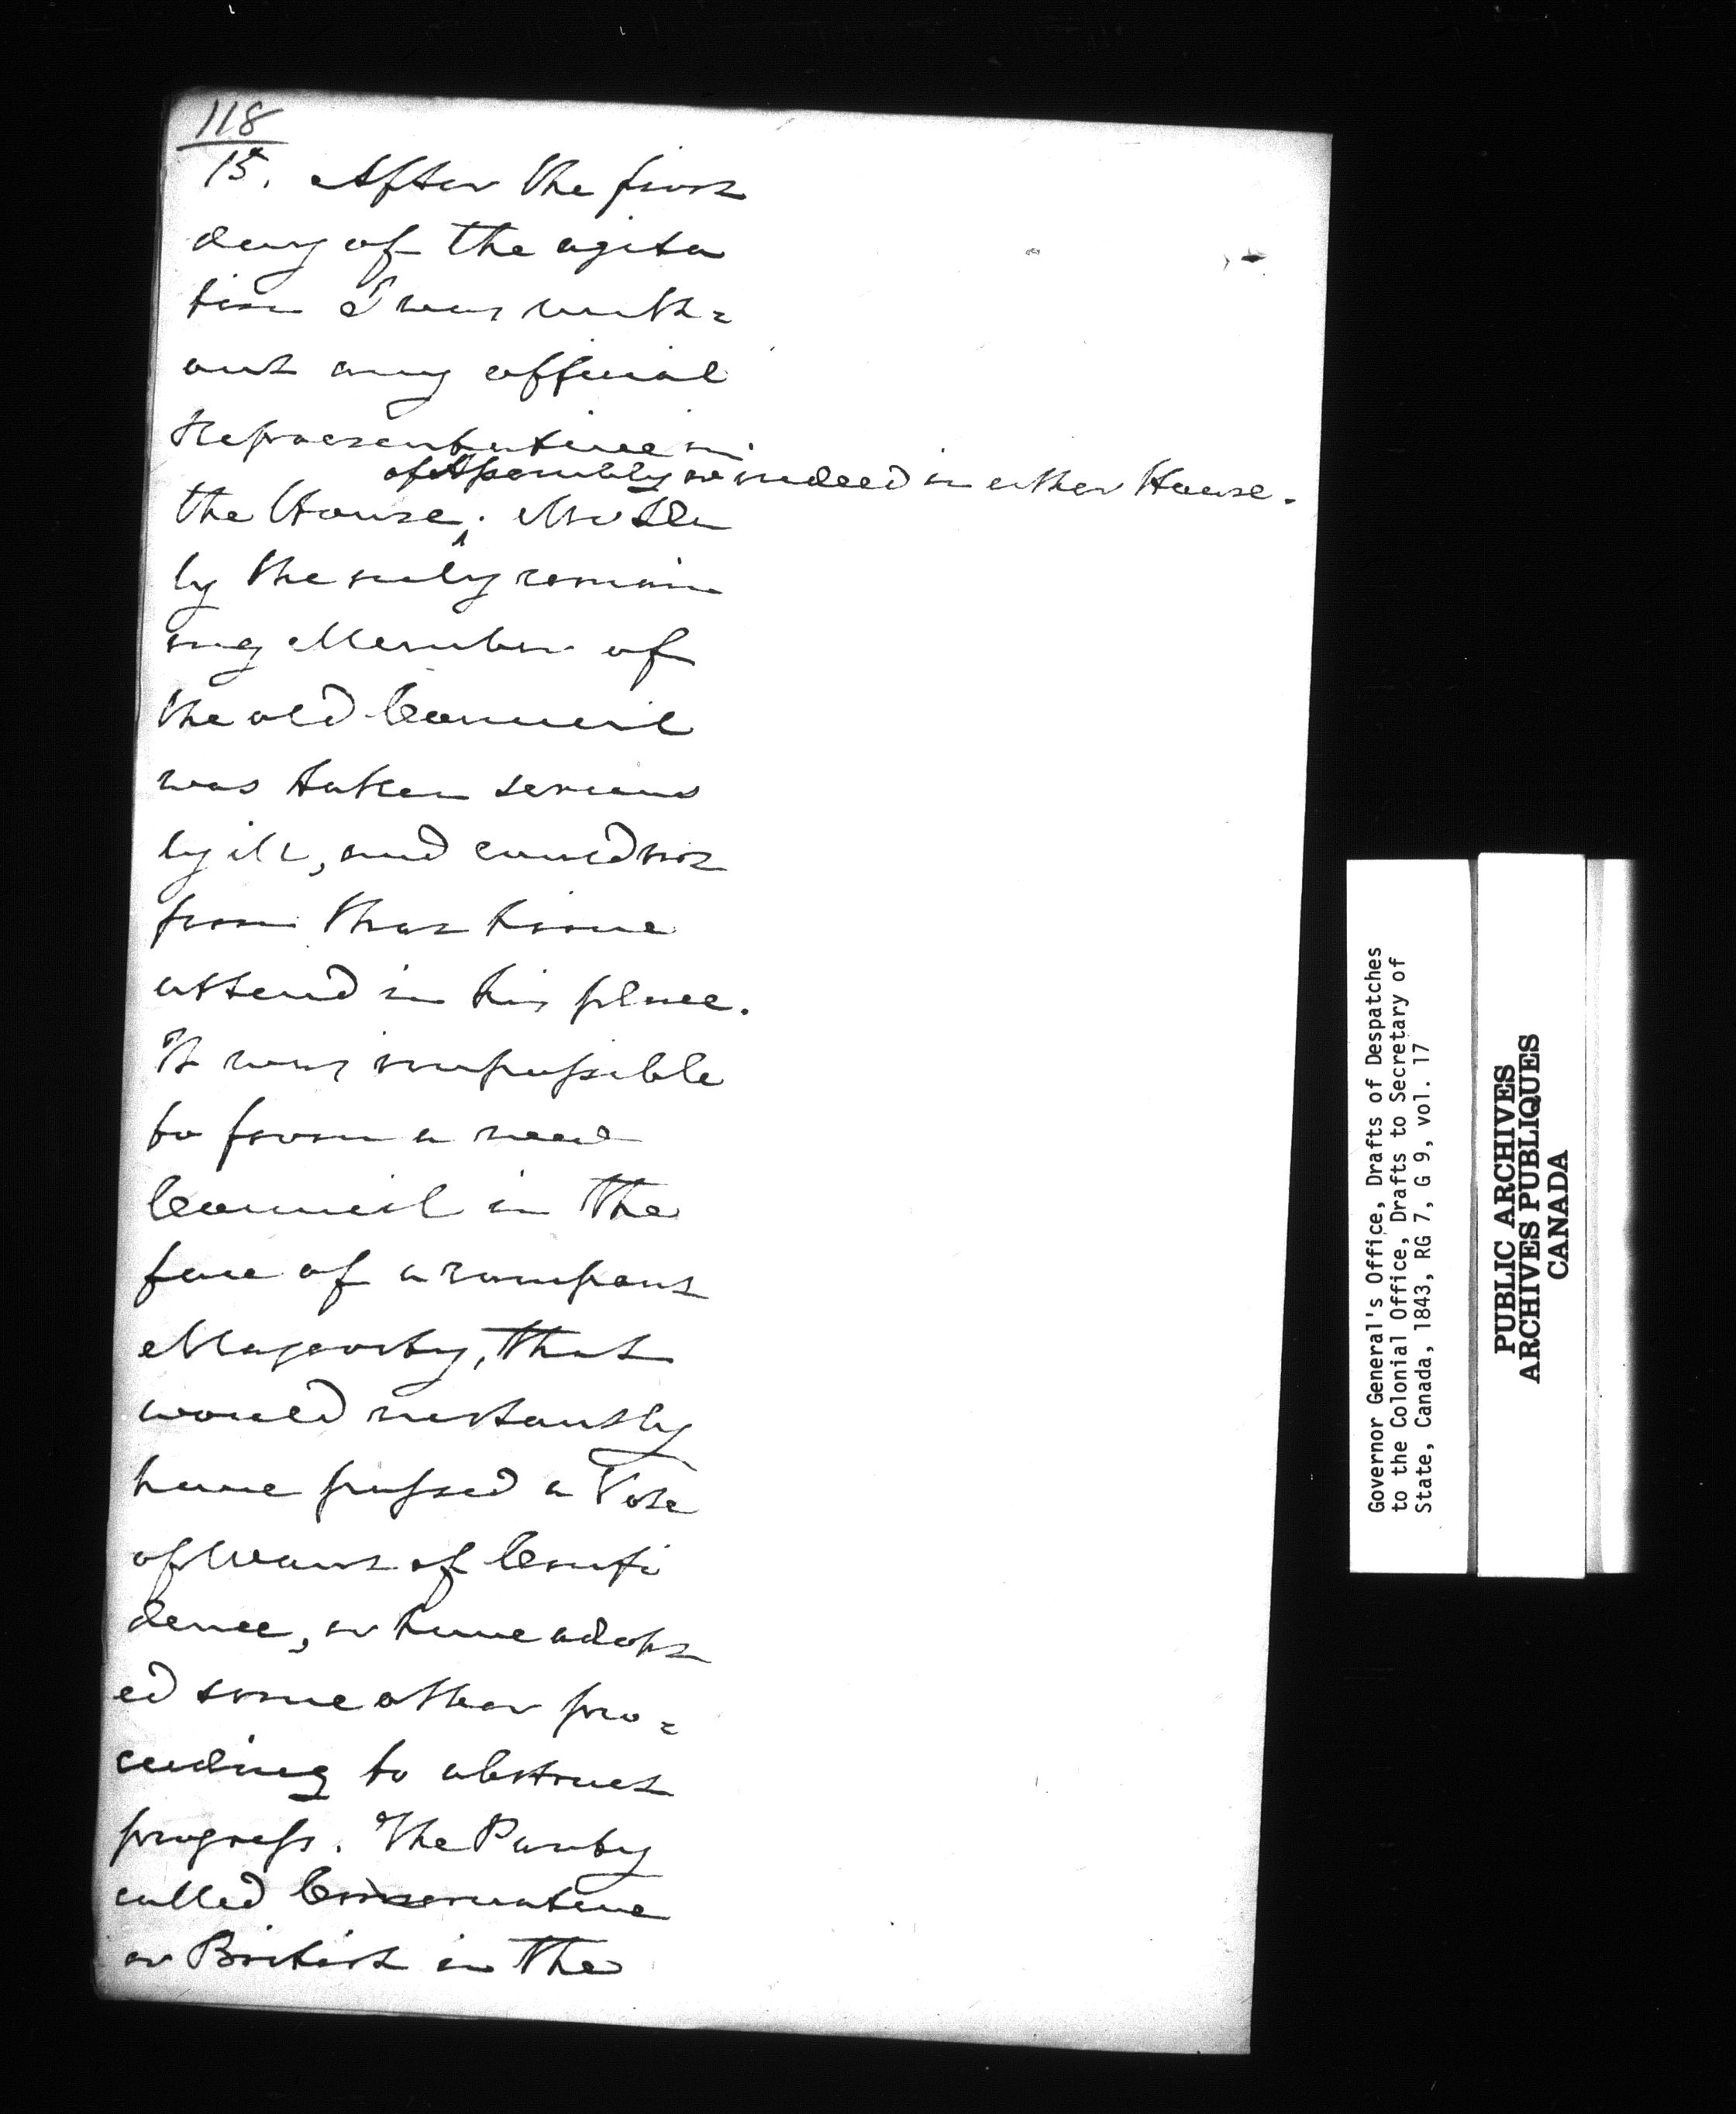 118
15. After the first
day of the agita
tion I was with=
out any official
Representative in
of Assembly or indeed in either House.
the House. Mr Da
ly the only remain
ing Member of
the old Council
was taken serious
ly ill, and could not
from that time
attend in his place.
It was impossible
to form a new
Council in the
face of a rampant
Majority, that
would instantly
have passed a Vote
of Want of Confi
dence, or have adopt
ed some other pro=
ceeding to obstruct
progress. The Party
called Conservative
or British in the
Governor General's Office, Drafts of Despatches
to the Colonial Office, Drafts to Secretary of
State, Canada, 1843, RG 7, G 9, vol. 17
PUBLIC ARCHIVES
ARCHIVES PUBLIQUES
CANADA